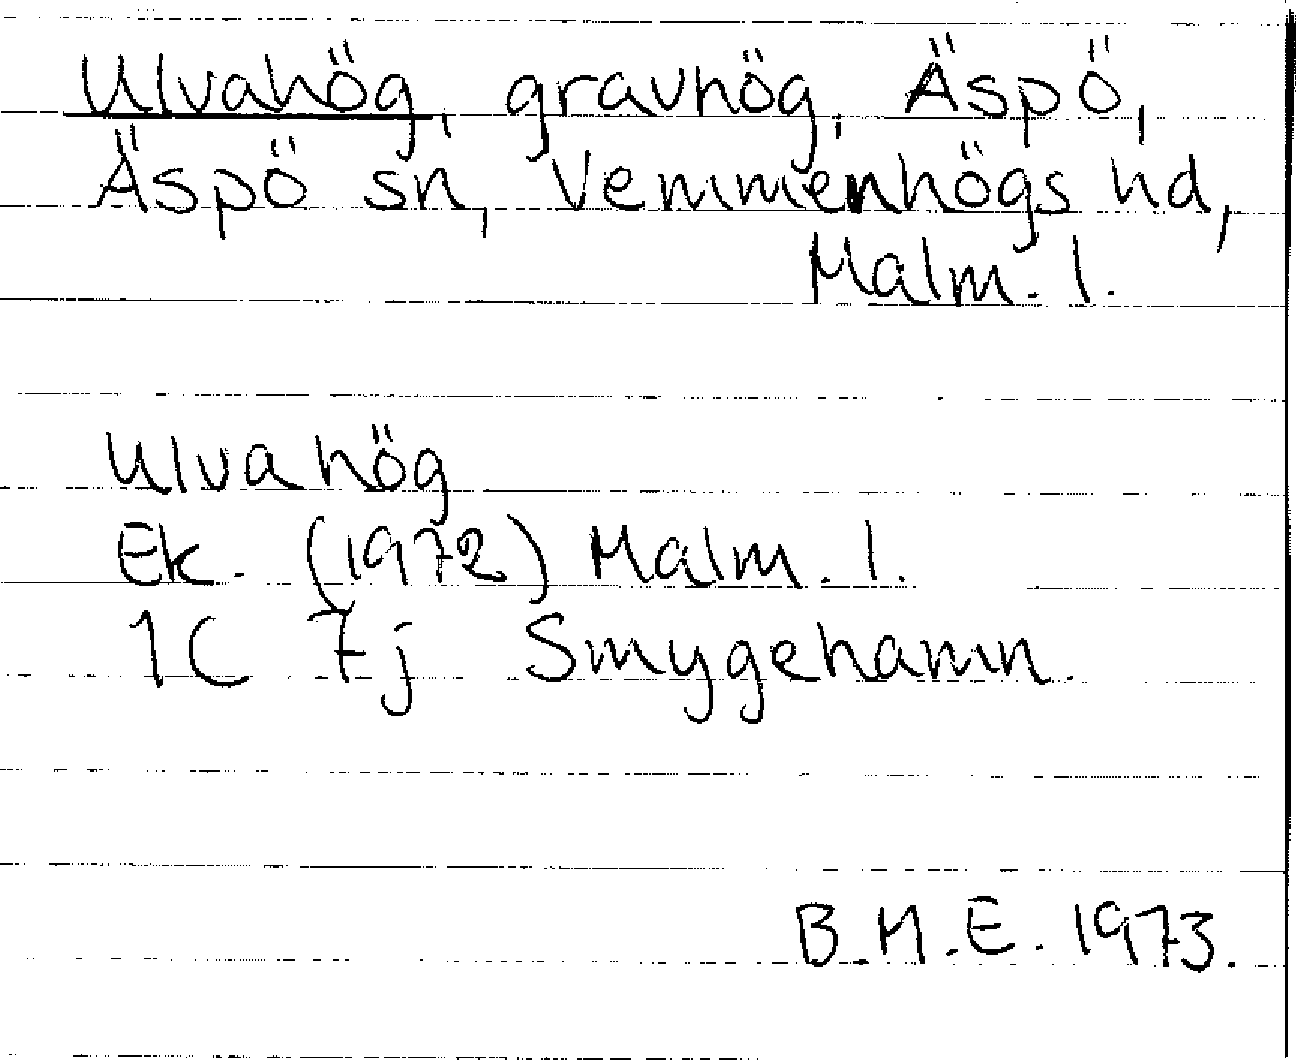 Ulvahög, gravhög, Äspö,
Äspö sn, Vemmenhögs hd,
Malm. l.
Ulvahög
Ek. (1972) Malm. l.
1C 7j Smygehamn.
B.M.E. 1973.